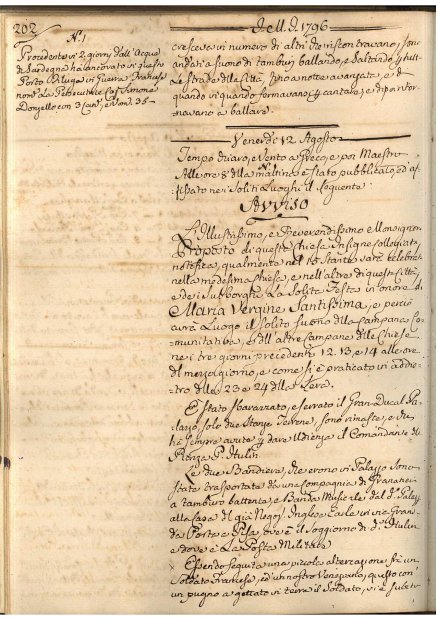 202
N.º 1
Procedente in 2 giorni dall'Acque
di Sardegna ha ancorato in questo
Porto Feluga in Guerra Francese
nom.ta La Persecutrice Cap. Simone
Donzello con 3 Can.i, e Uom. 35 -
J. M. J. 1796
cresceva in numero di altri che riscontravano,
andati a suono di tamburj ballando, e saltando p. tutte
Le strade della Città, fino a notte avanzata, e di
quando in quando fermavano p. cantare, e di poi ritor-
navano a ballare.
Venerdì 12 Agosto
Tempo chiaro, e Vento a Greco, e poi Maestro
Alle ore 8 della mattina è stato pubblicato, ed af-
fissato nei Soliti Luoghi il seguente
Avviso
L'Illustrissimo, e Reverendissimo Monsignor
Proposto di questa Chiesa Insigne Collegiata,
notifica, qualmente nel 15 Stante sarà celebrata
nella medesima Chiesa, e nell'altre di questa Città,
e dei Subborghi La Solita Festa in onore di
Maria Vergine Santissima, e perciò
avrà Luogo il Solito suono della Campana Co-
munitativa, e dell'altre Campane delle Chiese
nei tre giorni precedenti 12. 13, e 14 alle ore
del mezzo giorno, e come si è praticato in addie-
tro alle 23 e 24 della Sera.
È Stato sbarazzato, e serrato il Gran-Ducal Pa-
lazzo, solo due Stanze Terrene, sono rimaste, e che
ha sempre avute p. dare Udienza il Comandante di
Piazza G. Hulin
Le due Bandiere, che erono in Palazzo sono
state trasportate da una Compagnia di Granatieri
a tamburo battente, e Banda Musicale dal d.º Palazzo
alla Casa del già Negoz. Inglese
da Porta a Pisa, ove è il Soggiorno di d.º Hulin
e dove è La Posta Militare
× Essendo seguita una piccola altercazione frà un
Soldato Francese, ed un nostro Veneziano, questo con
un pugno à gettato in terra il Soldato, si è subito